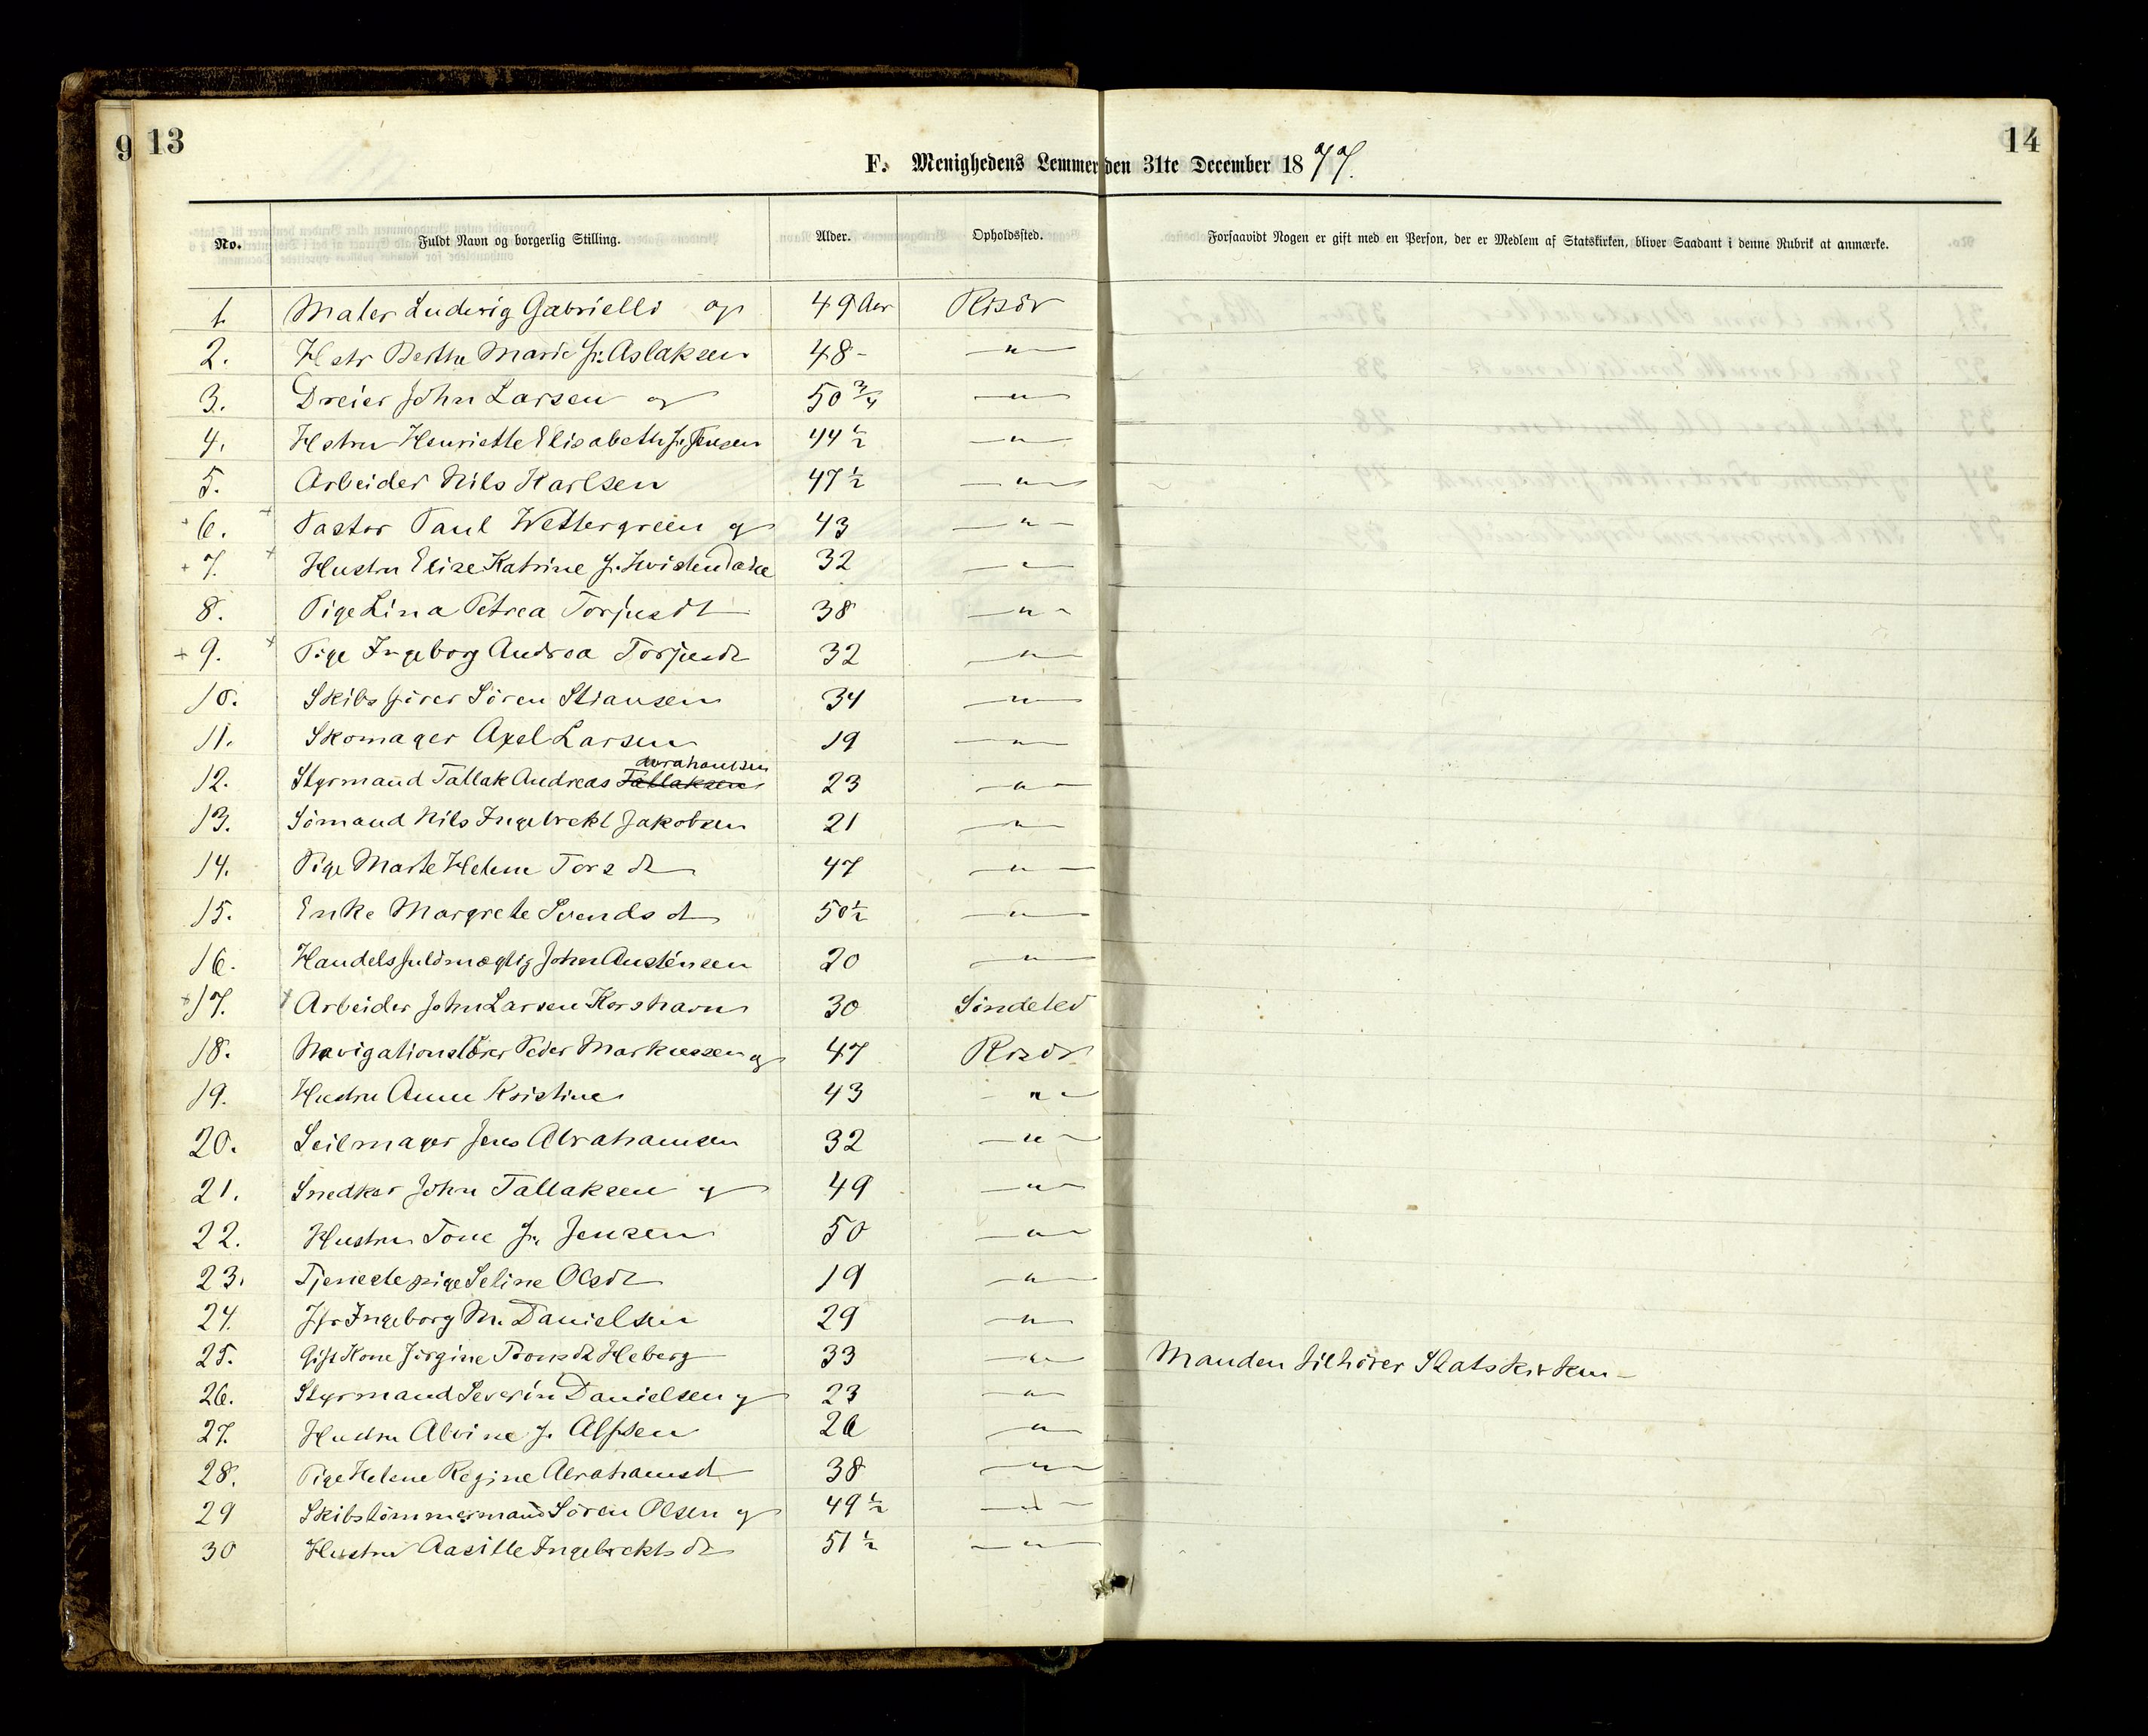 9 13
14
F. Menighedens Lemmer den 31te December 1877.
No. Fuldt Navn og borgerlig Stilling. Alder. Opholdssted. Forsaavidt Nogen er gift med en Person, der er Medlem af Statskirken, bliver Saadant i denne Rubrik at anmærke.
1. Maler Ludvig Gabrielli og 49 Aar Risör
2. Hstr Berthe Marie f: Aslaksen 48 - — " —
3. Dreier John Larsen og 50 3/4 — " —
4. Hstru Henriette Elisabeth f: Jensen 44 1/2 — " —
5. Arbeider Nils Karlsen 47 1/2 — " —
+ 6. + Pastor Paul Wettergreen og 43 — " —
+ 7. + Hustru Elise Katrine f. 32 — " —
8. Pige Lina Petrea Torjusdt 38 — " —
+ 9. + Pige Ingeborg Andrea Torjusdt 32 — " —
10. Skibsförer Sören Stiansen 34 — " —
11. Skomager Axel Larsen 19 — " —
Abrahamsen
12. Styrmand Tallak Andreas Tallaksen 23 — " —
13. Sömand Nils Ingebrekt Jakobsen 21 — " —
14. Pige Marte Helene Torsdt 47 — " —
15. Enke Margrete Svendsdt 50 1/2 — " —
16. Handelsfuldmægtig John Austensen 20 — " —
+ 17. + Arbeider John Larsen Korshavn 30 Söndeled
18. Navigationslærer Peder Markussen og 47 Risör
19. Hustru Anne Kristine 43 " —
20. Seilmager Jens Abrahamsen 32 — " —
21. Snedker John Tallaksen og 49 — " —
22. Hustru Tone f. Jensen 50 — " —
23. Tjenestepige Seline Olsdt 19 — " —
24. Jfr Ingeborg M. Danielsen 29 — " —
25. Gift Kone Jörgine Heberg 33 — " — Manden tilhörer Statskirken —
26. Styrmand Severin Danielsen og 23 — " —
27. Hustru Alvine f. Alfsen 26 — " —
28. Pige Helene Regine Abrahamsdt 38 — " —
29 Skibstömmermand Sören Olsen og 49 1/2 — " —
30 Hustru Aasille Ingebrektsdt 51 1/2 — " —